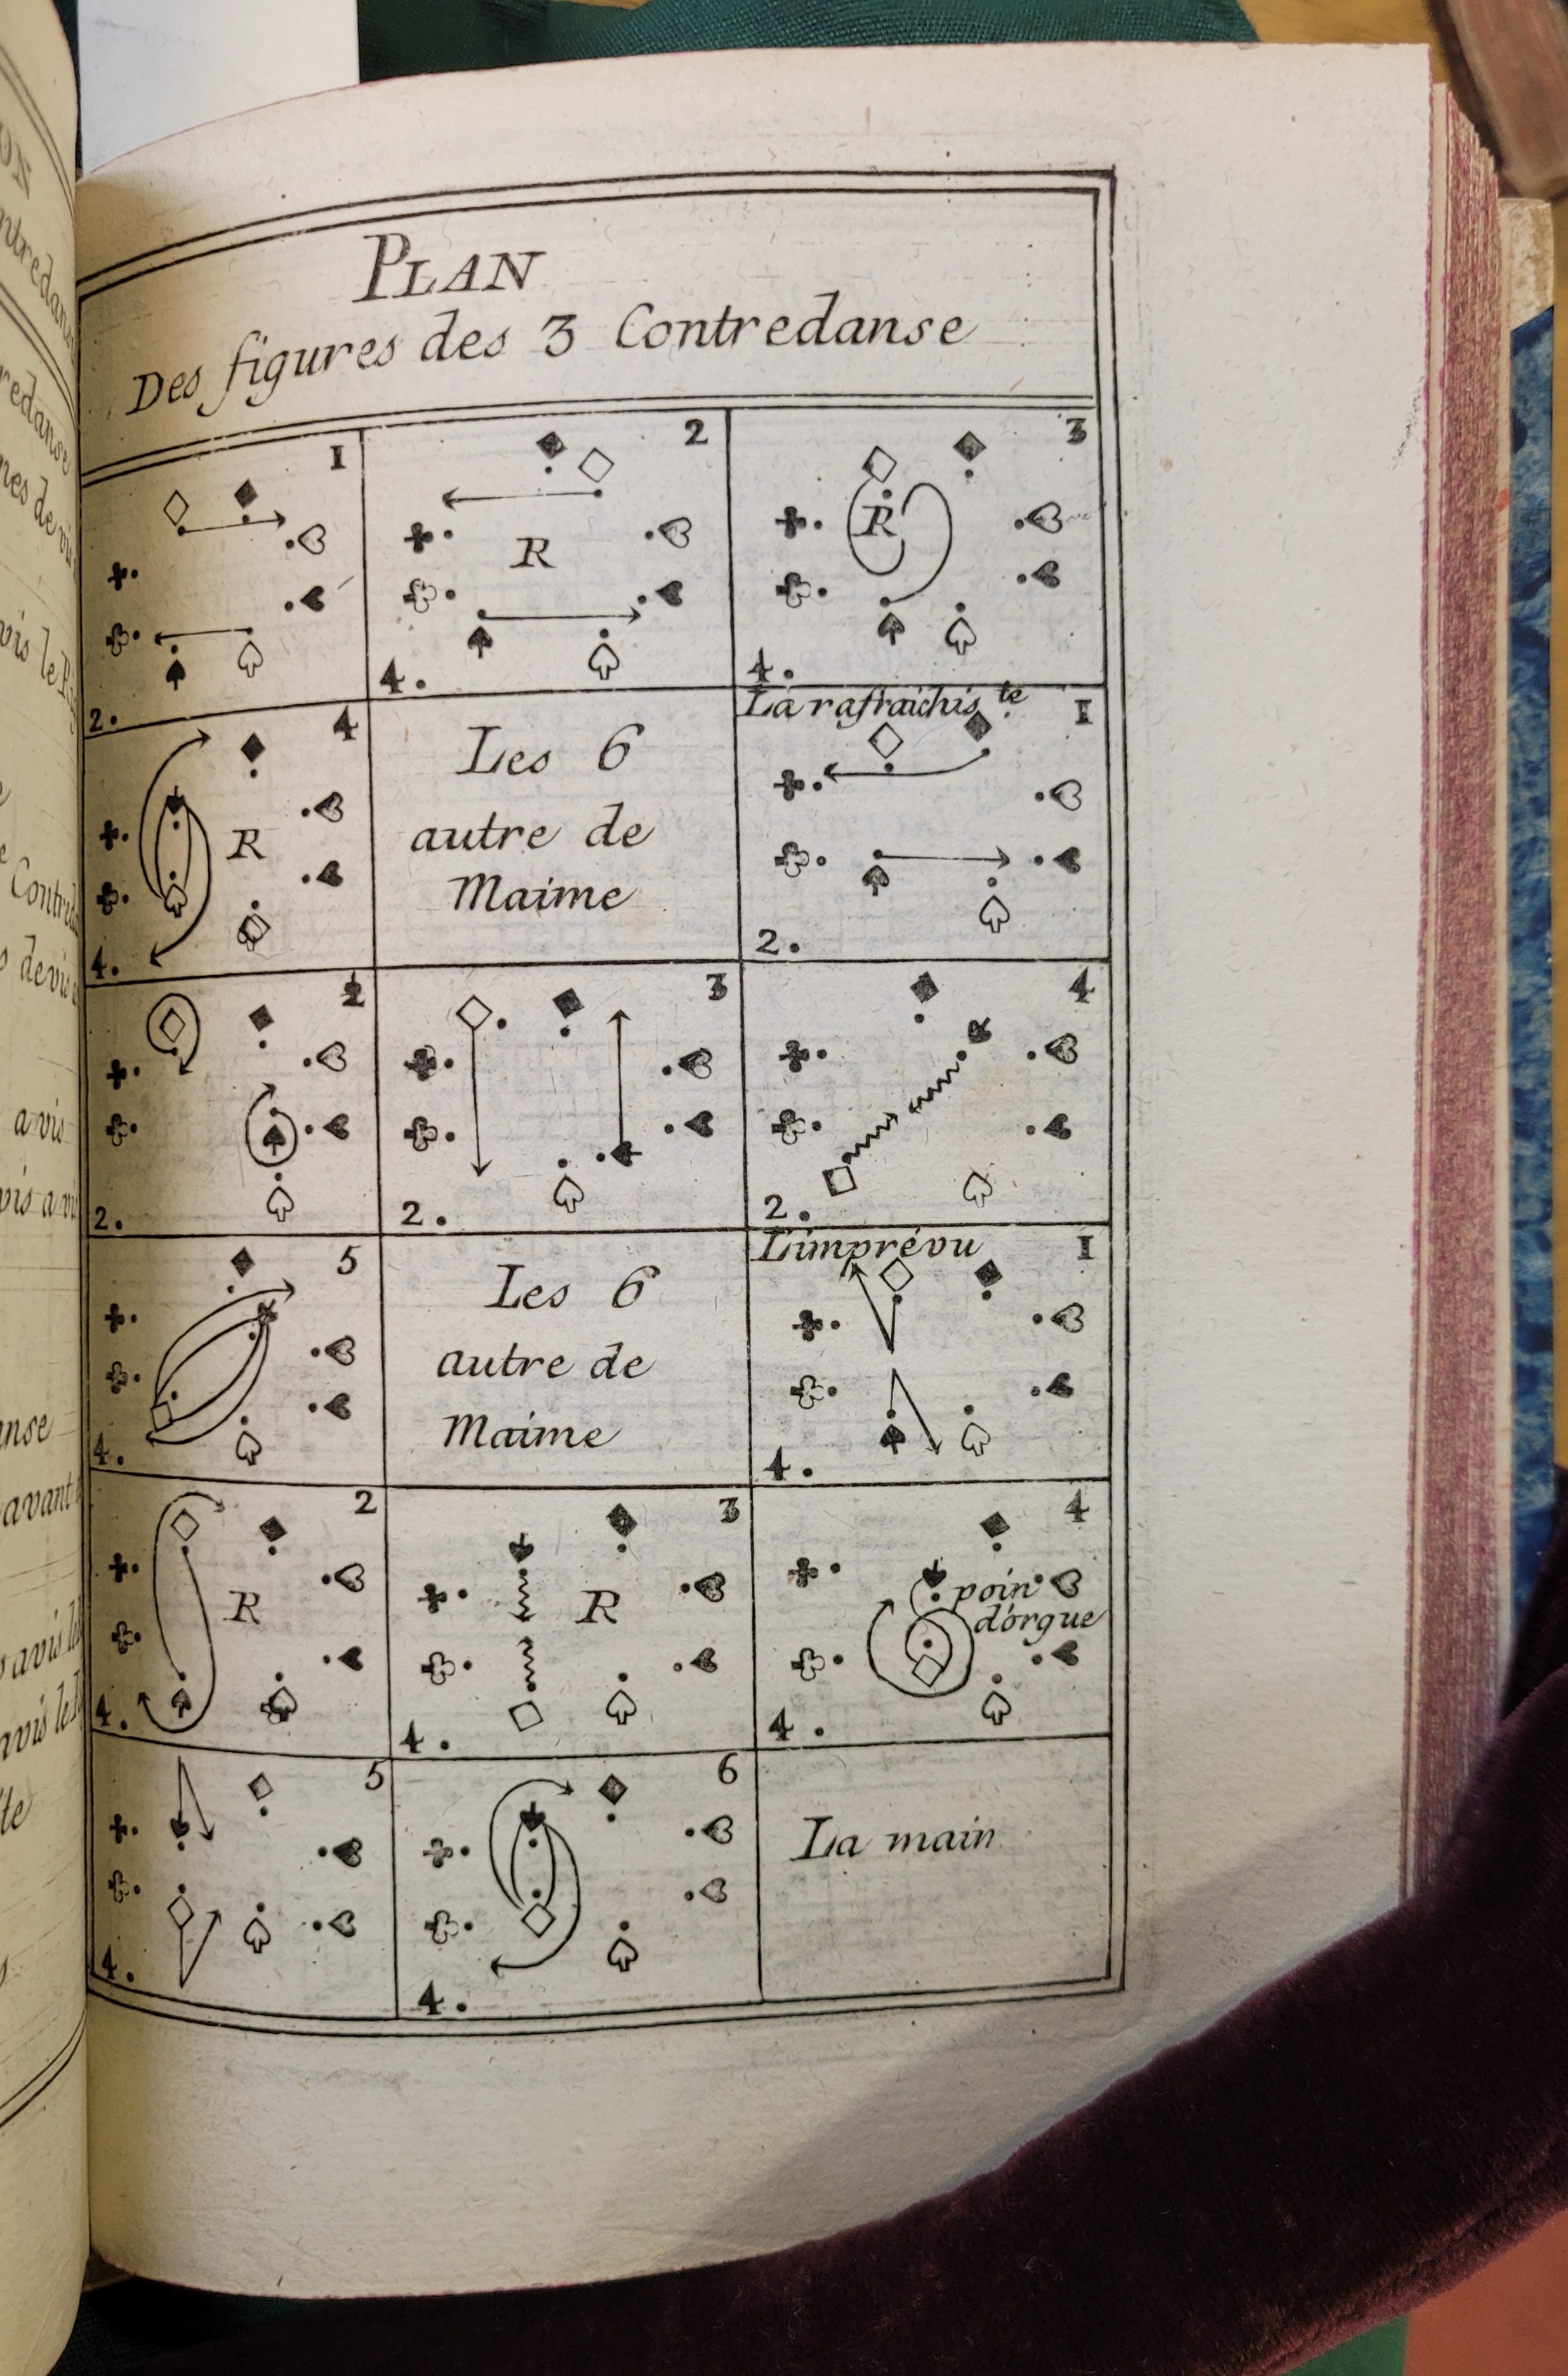 PLAN
Des figures des 3 Contredanse
1
2.
2
R
4.
3
R
4.
4
R
4.
Les 6
autre de
Maime
La rafraichis.te
1
2.
2
2.
3
2.
4
2.
5
4.
Les 6
autre de
Maime
L'imprévu
1
4.
2
R
4.
3
R
4.
4
poin
d'orgue
4.
5
4.
6
4.
La main